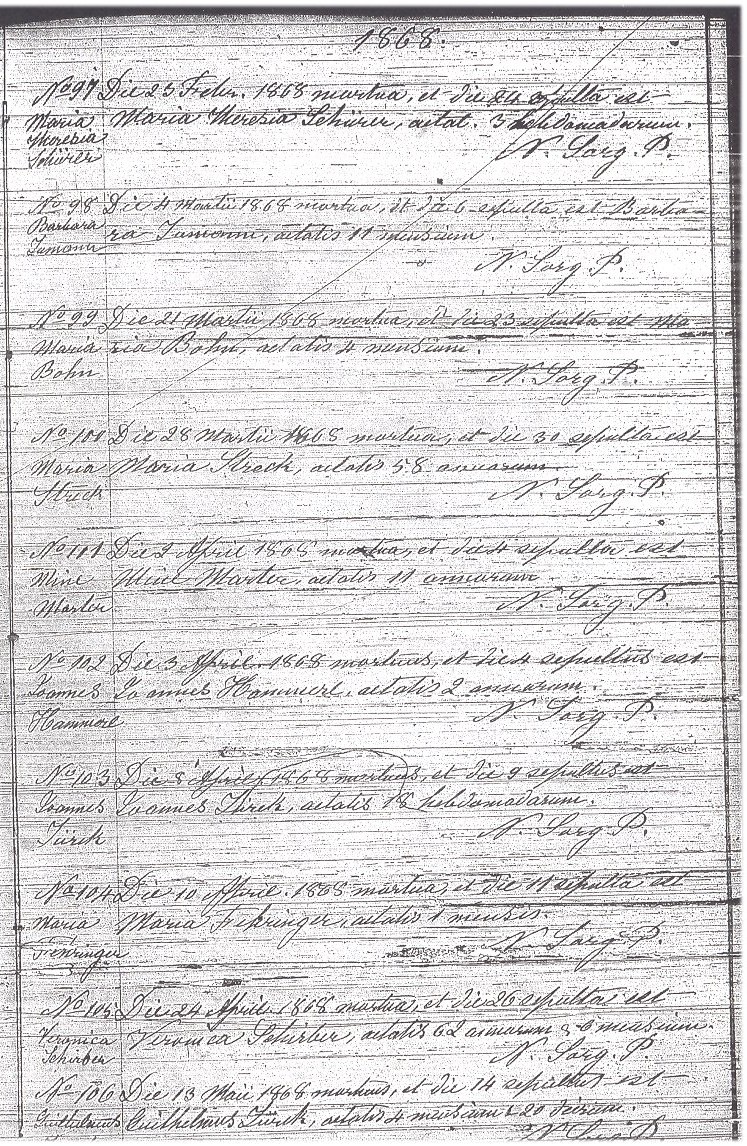 1868.
No 97 Die 23 Febr. 1868 mortua, et die 24 sepulta est
Maria Maria Theresia Schürer, aetat. 3 hebdomadarum.
Theresia
Schürer N. Sorg. P.
No 98 Die 4 Martii 1868 mortua, et die 6 sepulta est Barba-
Barbara ra aetatis 11 mensium.
N. Sorg. P.
No 99 Die 21 Martii 1868 mortua, et die 23 sepulta est Ma
Maria ria Bohn, aetatis 4 mensium.
Bohn N. Sorg. P.
No 100 Die 28 Martii 1868 mortua, et die 30 sepulta est
Maria Maria Streck, aetatis 58 annorum
Streck N. Sorg. P.
No 111 Die 2 April 1868 mortua, et die 4 sepulta est
Mine Mine Marter, aetatis 11 annorum
Marter N. Sorg. P.
No 102 Die 3 April. 1868 mortuus, et die 4 sepultus est
Joannes Joannes Hammerl, aetatis 2 annorum.
Hammerl N. Sorg. P.
No 103 Die 8 April. 1868 mortuus, et die 9 sepultus est
Joannes Joannes Türck, aetatis 18 hebdomadarum.
Türck N. Sorg. P.
No 104 Die 10 April. 1868 mortua, et die 11 sepulta est
Maria Maria Fehringer, aetatis 1 mensis.
Fehringer N. Sorg. P.
No 105 Die 24 April. 1868 mortua, et die 26 sepulta est
Veronica Veronica Schirber, aetatis 62 annorum & 6 mensium.
Schirber N. Sorg. P.
No 106 Die 13 Maii 1868 mortuus, et die 14 sepultus est
Guilhelmus Guilhelmus Türck, aetatis 4 mensium & 20 dierum.
N. Sorg. P.